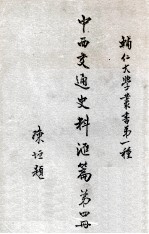 輔仁大學叢書第一種
中西交通史料匯篇第四冊
陳垣題